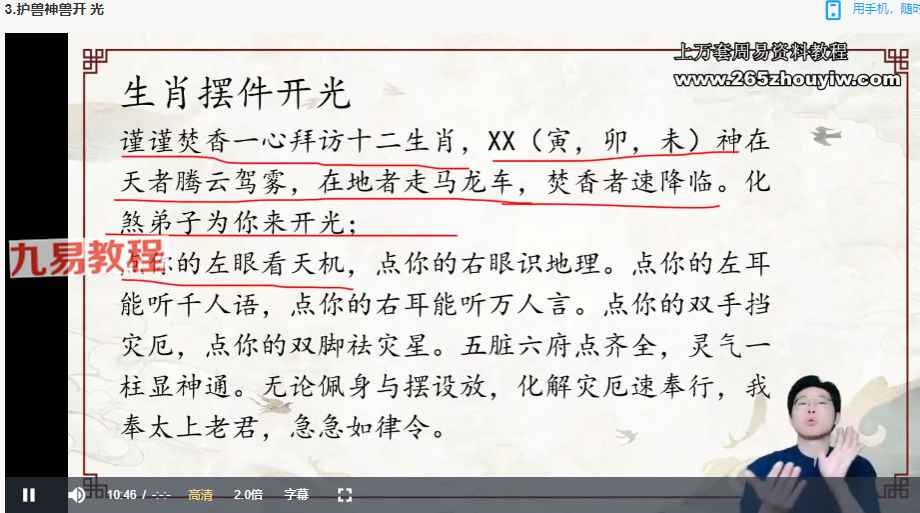 3.护兽神兽开 光
用手机，随时
上万套周易资料教程
www.265zhouyiw.com
生肖摆件开光
谨谨焚香一心拜访十二生肖，XX（寅，卯，未）神在
天者腾云驾雾，在地者走马龙车，焚香者速降临。化
煞弟子为你来开光；
九易教程
点你的左眼看天机，点你的右眼识地理。点你的左耳
能听千人语，点你的右耳能听万人言。点你的双手挡
灾厄，点你的双脚祛灾星。五脏六府点齐全，灵气一
柱显神通。无论佩身与摆设放，化解灾厄速奉行，我
奉太上老君，急急如律令。
10:46 / -:-- 高清 2.0倍 字幕